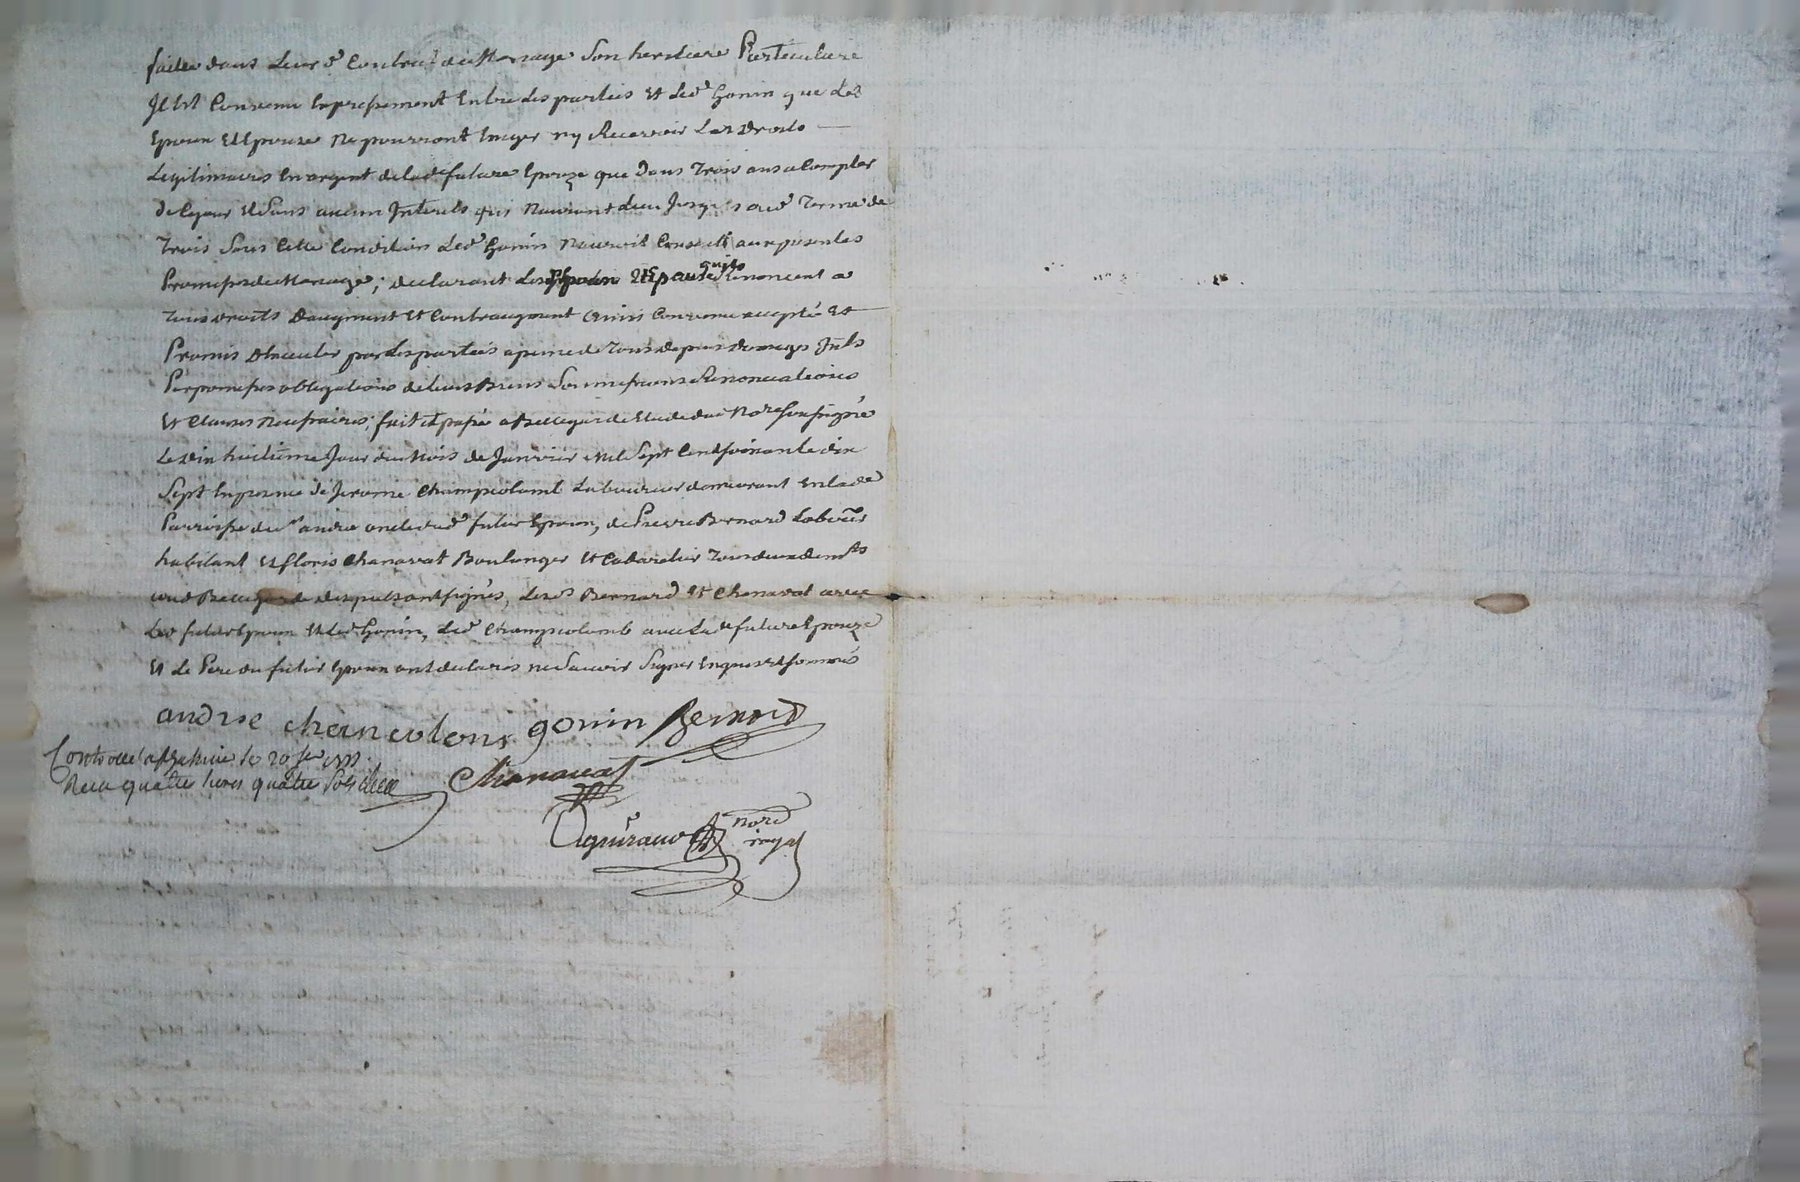 faitte dans leur d contrat de Mariage Son heritiere Particuliere
Il Est Convenu Expressement Entre les parties et led gonin que les
Epoux et Epouze Ne pourront Exiger ny Recevoir les droits
Legitimaires En argent de lad future Epouze que dans trois ans a Compter
de Ce jour et Sans aucun Interets qui Nauront lieu Jusques aud terme de
trois Sans Cette Condition led gonin Nauroit Consenti aux presentes
Promesses de Mariage; declarant les Renoncent a
tous droits daugment et Contraugment ainsi Convenu accepté et
Promis Executer par les parties a peine de tous depens domages Ints
Par promesses obligations de leurs Biens Soumissions Renonciations
et Clauses Necessaires; fait et passé a Bellegarde Etude du Nore soussigné
Le dix huitième Jour du Mois de Janvier Mil Sept Cent soixante dix
Sept En presence de Jerome Champcolomb Laboureur demeurant En lad
Parroisse de st andre oncle dud futur Epoux, de Pierre Bernard Labour
habitant et floris Chanavat Boulanger et Cabaretier tous deux demts
aud Bellegarde desquels ont signés, lesd Bernard et Chanavat avec
led futur Epoux et led gonin, led Champcolomb avec lad future Epouze
et le Pere du futur Epoux ont declarés ne Sauoir Signer Enquis et sommés
andre gonin Bernard
Controllé a le 20 Jer 1777.
Recu quatre livres quatre Sols
Chanavat
nore
royal